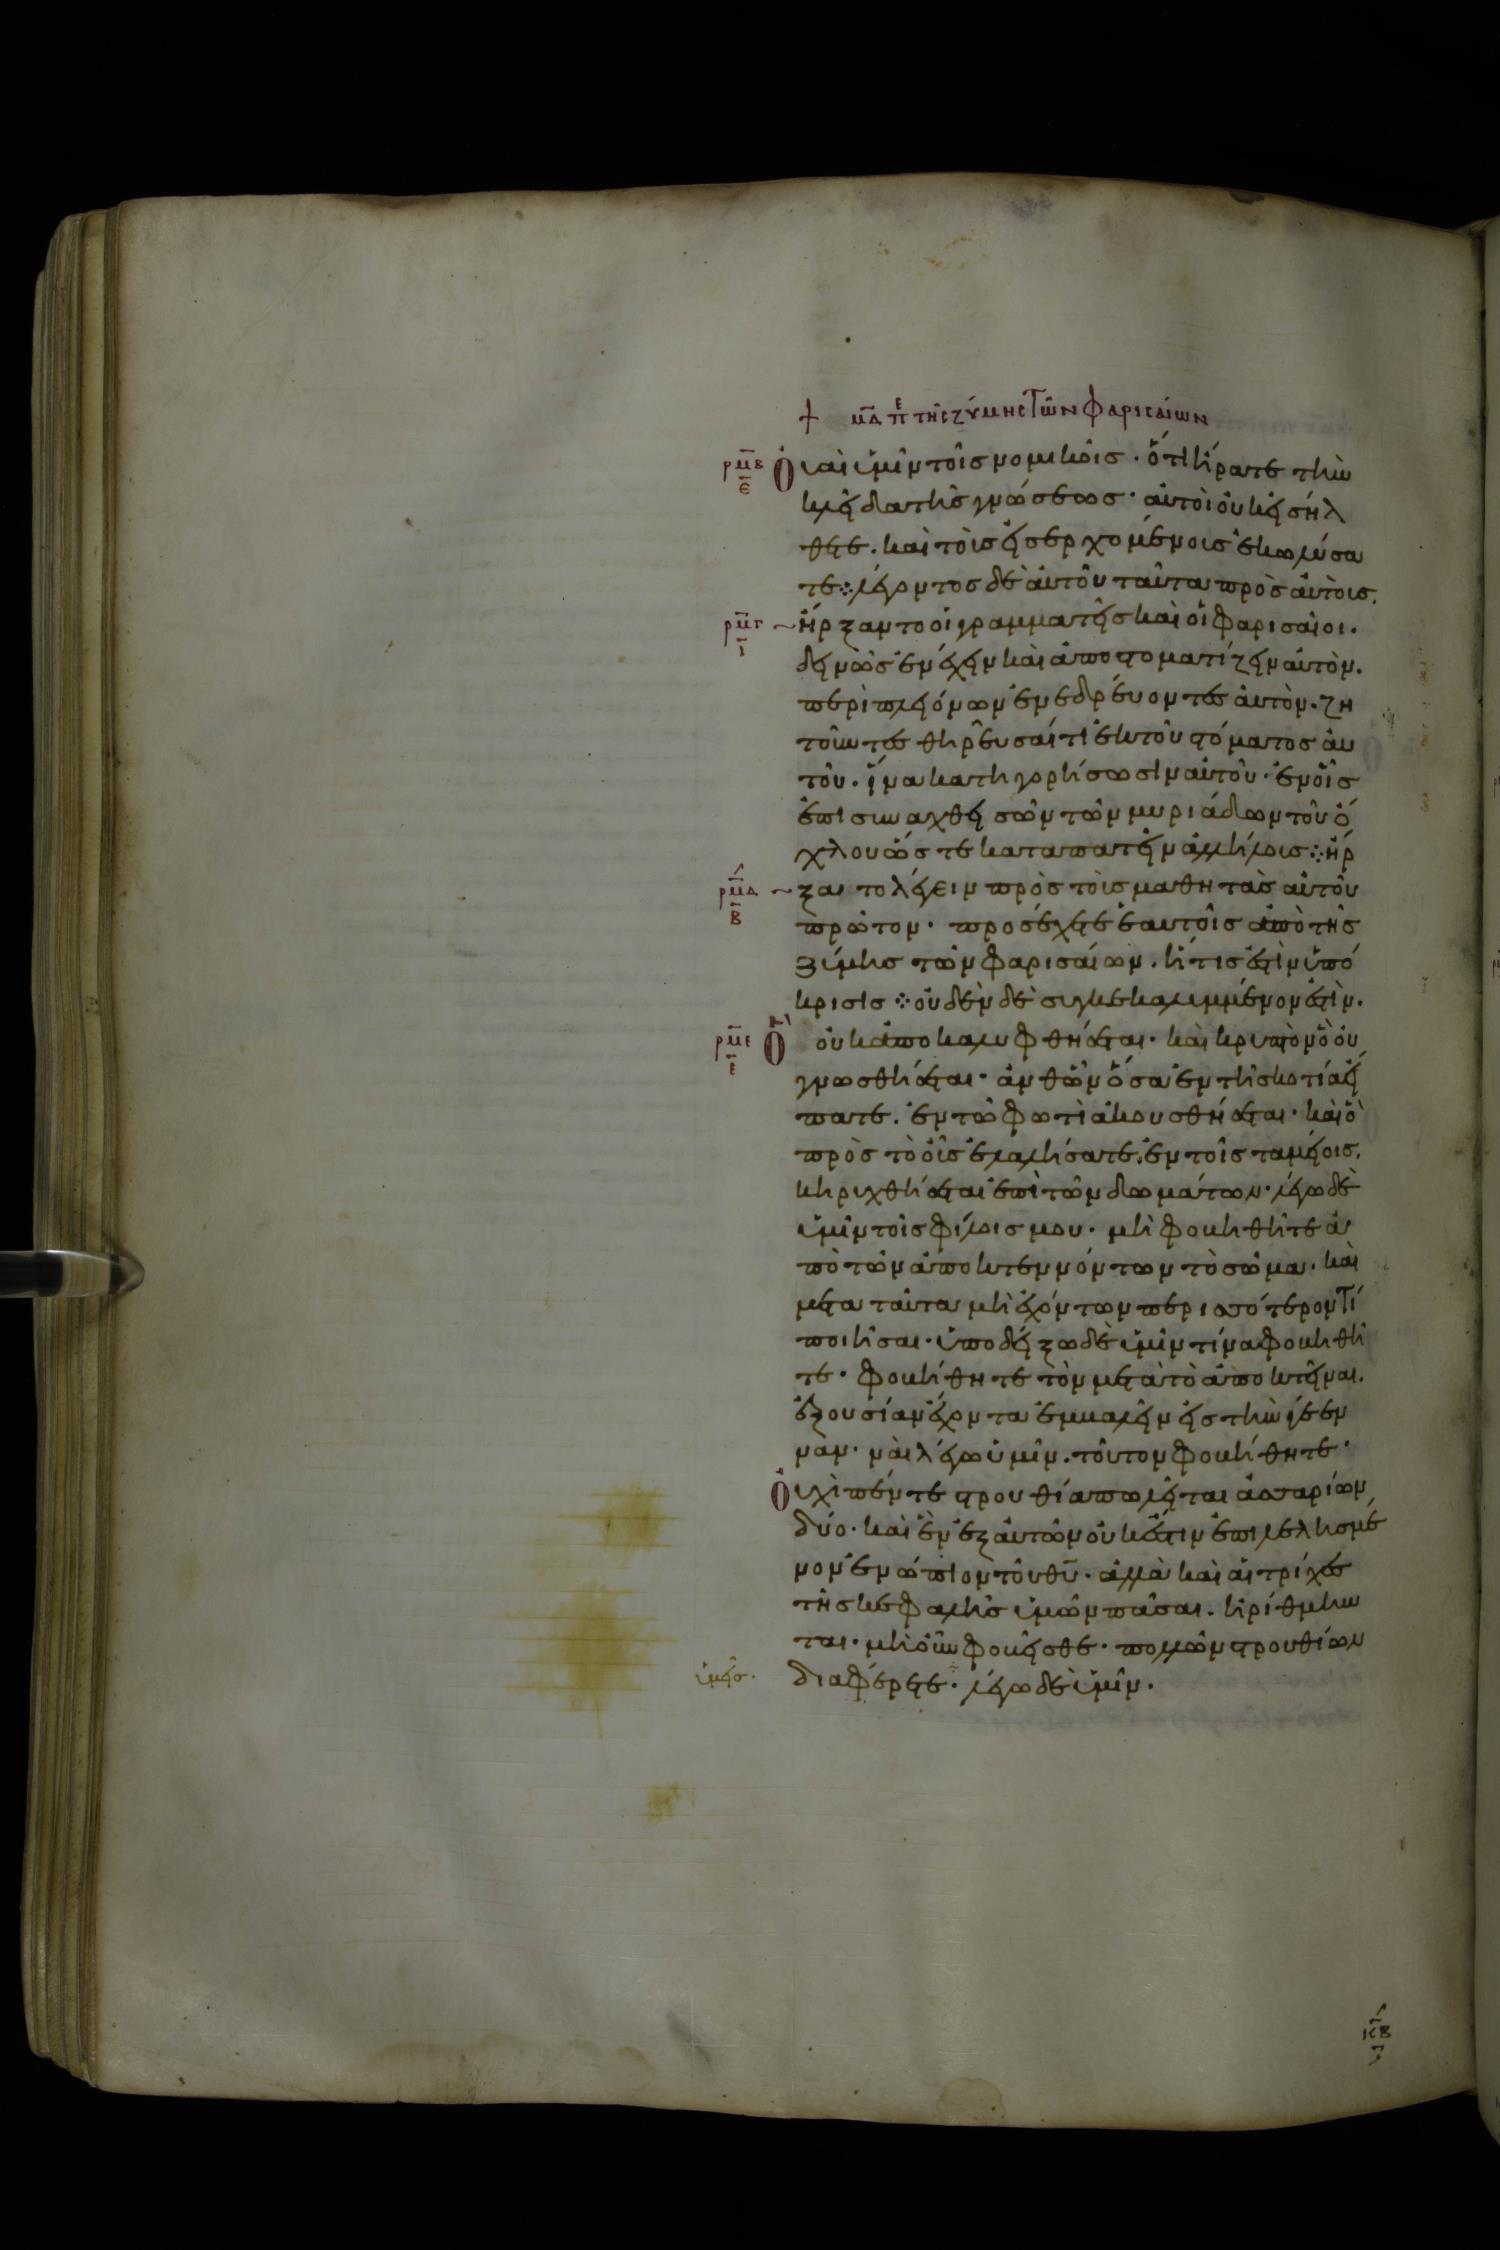 μ̅δ̅ π̅ε̅ τῆς ζύμης τῶν φαρισαίων
ρμβ
ε
Ουαὶ ὑμῖν τοῖς νομικοῖς· ὅτι ἤρατε τὴν
κλεῖδα τῆς γνώσεως· αὐτοὶ οὐκ εἰσήλ
θετε. καὶ τοὺς εἰσερχομένους ἐκωλύσα
τε⁘ λέγοντος δὲ αὐτοῦ ταῦτα πρὸς αὐτοὺς.
ρμγ
ι
ἤρξαντο οἱ γραμματεῖς καὶ οἱ φαρισαῖοι.
δεινῶς ἐνέχειν καὶ ἀποστοματίζειν αὐτὸν.
περὶ πλειόνων ἐνεδρεύοντες αὐτὸν. ζη
τοῦντες θηρεῦσαί τι ἐκ τοῦ στόματος αὐ
τοῦ. ἵνα κατηγορήσωσιν αὐτοῦ· ἐν οἷς
ἐπισυναχθεισῶν τῶν μυριάδων τοῦ ὄ
χλου ὥστε καταπατεῖν ἀλλήλους⁘ ἤρ
ρμδ
β
ξατο λέγειν πρὸς τοὺς μαθητὰς αὐτοῦ
πρῶτον· προσέχετε ἑαυτοῖς ἀπὸ τῆς
ζύμης τῶν φαρισαίων. ἥτις ἐστὶν ὑπό
κρισις⁘ οὐδὲν δὲ συγκεκαλυμμένον ἐστὶν.
ρμε
ε
Ὃ οὐκ ἀποκαλυφθήσεται· καὶ κρυπτὸν ὃ οὐ
γνωσθήσεται· ἀνθῶν ὅσα ἐν τῇ σκοτίᾳ εἴ
πατε. ἐν τῷ φωτὶ ἀκουσθήσεται· καὶ ὃ
πρὸς τὸ οὖς ἐλαλήσατε. ἐν τοῖς ταμείοις.
κηρυχθήσεται ἐπὶ τῶν δωμάτων· λέγω δὲ
ὑμῖν τοῖς φίλοις μου· μὴ φοβηθῆτε ἀ
πὸ τῶν ἀποκτεννόντων τὸ σῶμα. καὶ
μετα ταῦτα μὴ ἐχόντων περισσότερον τί
ποιῆσαι· ὑποδείξω δὲ ὑμῖν τίνα φοβηθῆ
τε· φοβήθητε τὸν μετὰ τὸ ἀποκτεῖναι.
ἐξουσίαν ἔχοντα ἐμβαλεῖν εἰς τὴν γέεν
ναν· ναὶ λέγω ὑμῖν. τοῦτον φοβήθητε·
Οὐχὶ πέντε στρουθία πωλεῖται ἀσσαρίων
δύο· καὶ ἓν ἐξ αὐτῶν οὐκ ἔστιν ἐπιλελησμέ
νον ἐνώπιον τοῦ θ̅υ̅· ἀλλὰ καὶ αἱ τρίχες
τῆς κεφαλῆς ὑμῶν πᾶσαι. ἠρίθμην
ται· μὴ οὖν φοβεῖσθε· πολλῶν στρουθίων
ὑμεῖς·
διαφέρετε· λέγω δὲ ὑμῖν·
κβ